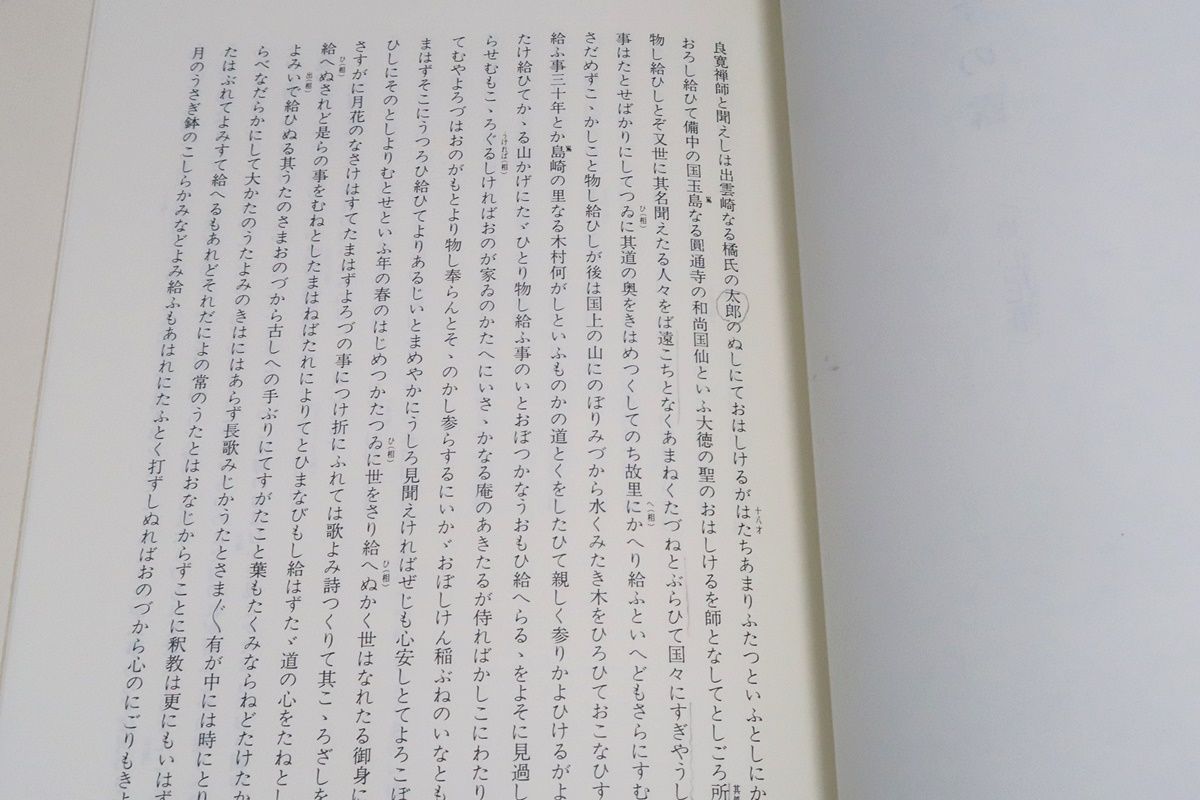 良寛禅師と聞えしは出雲崎なる橘氏の太郎のぬしにておはしけるがはたちあまりふたつといふとしにか
十八才
おろし給ひて備中の国玉島なる圓通寺の和尚国仙といふ大徳の聖のおはしけるを師となしてとしごろ所
物し給ひしとぞ又世に其名聞えたる人々をば遠こちとなくあまねくたづねとぶらひて国々にすぎやうし
事はたとせばかりにしてつゐに其道の奥をきはめつくしてのち故里にかへり給ふといへどもさらにすむ
ひ(相)
へ(相)
さだめずこゝかしこと物し給ひしが後は国上の山にのぼりみづから水くみたき木をひろひておこなひす
給ふ事三十年とか島崎の里なる木村何がしといふものかの道とくをしたひて親しく参りかよひけるがよ
たけ給ひてかゝる山かげにたゞひとり物し給ふ事のいとおぼつかなうおもひ給へらるゝをよそに見過し
らせむもこゝろぐるしければおのが家ゐのかたへにいさゝかなる庵のあきたるが侍ればかしこにわたり
うければ(相)
てむやよろづはおのがもとより物し奉らんとそゝのかし参らするにいかゞおぼしけん稲ぶねのいなとも
まはずそこにうつろひ給ひてよりあるじいとまめやかにうしろ見聞えければぜじも心安しとてよろこぼ
ひしにそのとしよりむとせといふ年の春のはじめつかたつゐに世をさり給へぬかく世はなれたる御身に
ひ(相)
ひ(相)
さすがに月花のなさけはすてたまはずよろづの事につけ折にふれては歌よみ詩つくりて其こゝろざしを
給へぬされど是らの事をむねとしたまはねばたれによりてとひまなびもし給はずたゞ道の心をたねとし
ひ(相)
よみいで給ひぬる其うたのさまおのづから古しへの手ぶりにてすがたこと葉もたくみならねどたけたか
出(相)
らべなだらかにして大かたのうたよみのきはにはあらず長歌みじかうたとさま〴〵有が中には時にとり
たはぶれてよみすて給へるもあれどそれだによの常のうたとはおなじからずことに釈教は更にもいはず
月のうさぎ鉢のこしらかみなどよみ給ふもあはれにたふとく打ずしぬればおのづから心のにごりもきよ